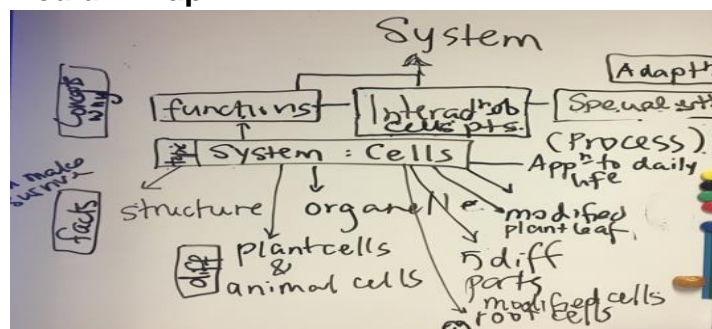 System
Adaptn
Concepts
why
functions
Interactn ob
cells pts.
(Process)
System : Cells
Appn to daily
life
make
facts
structure
organelle
modified
plant leaf
diff
plant cells
&
animal cells
5 diff
parts
modified cells
root cells